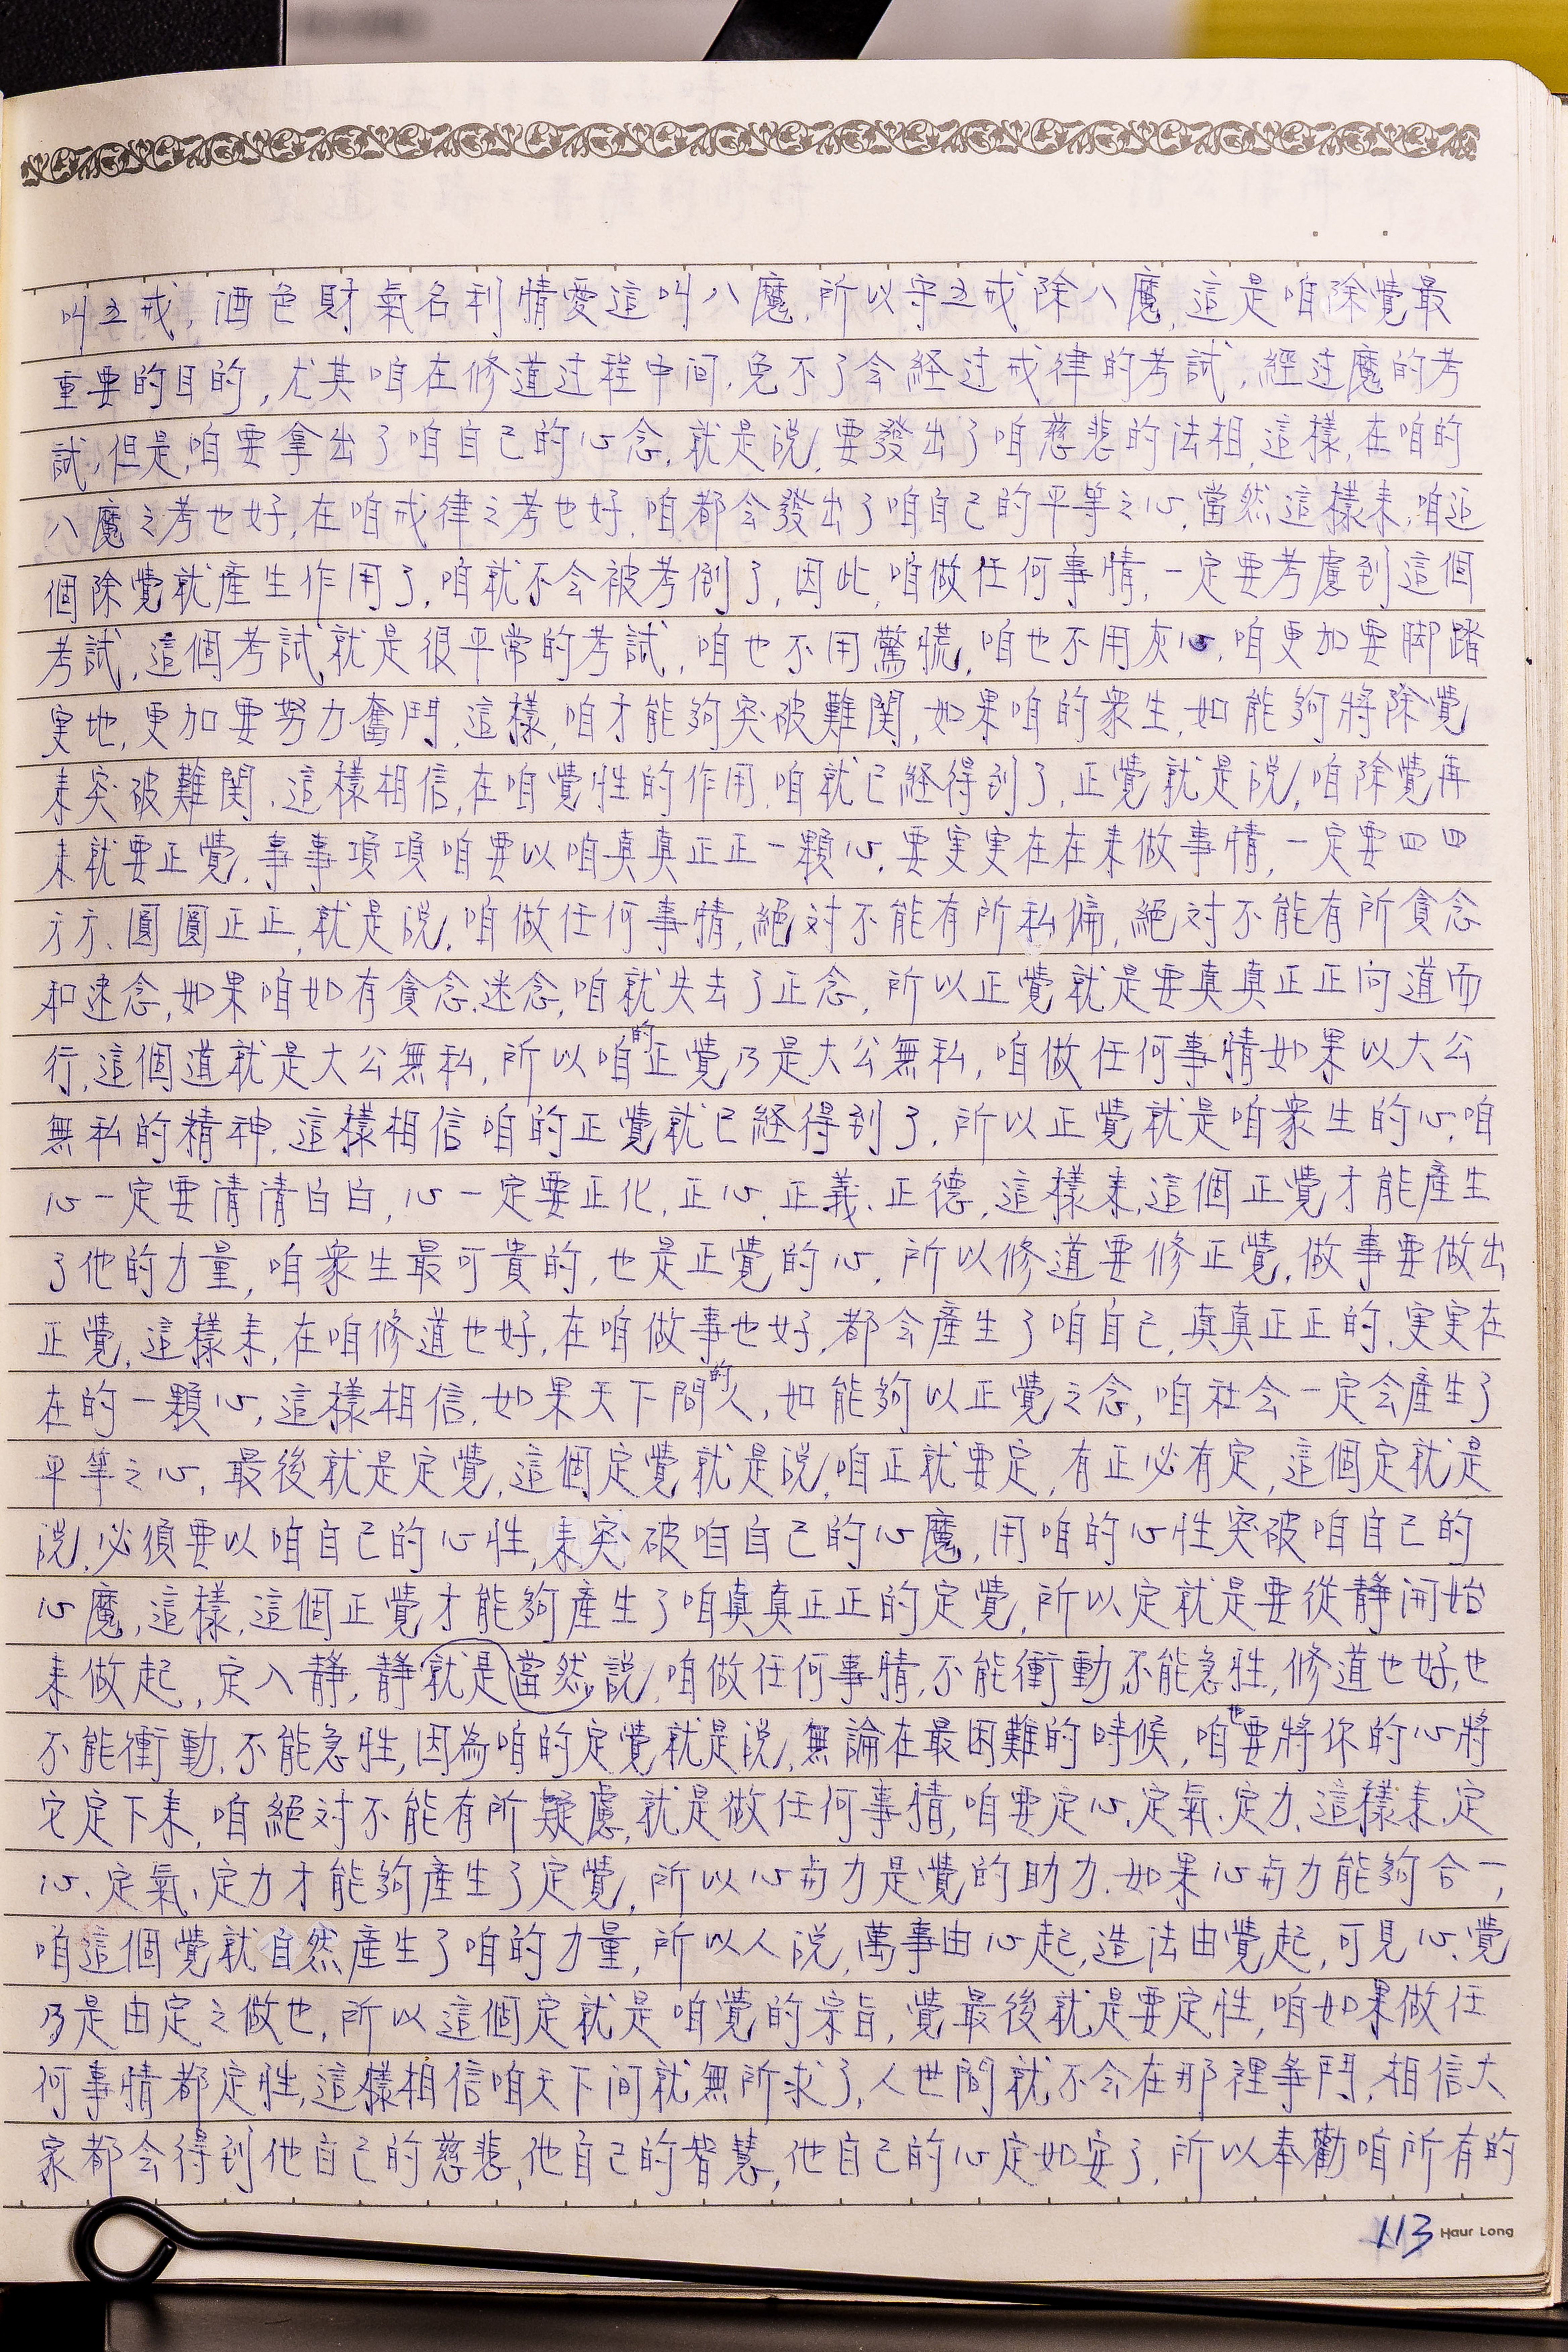 叫五戒，酒色財氣名利情愛這叫八魔，所以守五戒除八魔，這是咱除覺最
重要的目的，尤其咱在修道过程中间，免不了会経过戒律的考試，經过魔的考
試，但是，咱要拿出了咱自己的心念，就是說，要發出了咱慈悲的法相，這樣，在咱的
八魔之考也好，在咱戒律之考也好，咱都会發出了咱自己的平等之心，當然這樣来，咱這
個除覺就產生作用了，咱就不会被考倒了，因此，咱做任何事情，一定要考慮到這個
考試，這個考試就是很平常的考試，咱也不用驚慌，咱也不用灰心，咱更加要脚踏
実地，更加要努力奮鬥，這樣，咱才能夠突破難関，如果咱的衆生，如能夠將除覺
来突破難関，這樣相信，在咱覺性的作用，咱就已経得到了，正覺就是說，咱除覺再
来就要正覺，事事項項咱要以咱真真正正一顆心，要実実在在来做事情，一定要四四
方方、圓圓正正，就是說，咱做任何事情，絕対不能有所私偏，絕対不能有所貪念
和迷念，如果咱如有貪念迷念，咱就失去了正念，所以正覺就是要真真正正向道而
行，這個道就是大公無私，所以咱的正覺乃是大公無私，咱做任何事情如果以大公
無私的精神，這樣相信咱的正覺就已経得到了，所以正覺就是咱衆生的心，咱
心一定要清清白白，心一定要正化，正心，正義，正德，這樣来，這個正覺才能產生
了他的力量，咱衆生最可貴的，也是正覺的心，所以修道要修正覺，做事要做出
正覺，這樣来，在咱修道也好，在咱做事也好，都会產生了咱自己，真真正正的，実実在
在的一顆心，這樣相信，如果天下間的人，如能夠以正覺之念，咱社会一定会產生了
平等之心，最後就是定覺，這個定覺就是說，咱正就要定，有正必有定，這個定就是
說，必須要以咱自己的心性，来突破咱自己的心魔，用咱的心性突破咱自己的
心魔，這樣，這個正覺才能夠產生了咱真真正正的定覺，所以定就是要從靜開始
来做起，定入靜，靜就是當然說，咱做任何事情，不能衝動，不能急性，修道也好，也
不能衝動，不能急性，因為咱的定覺就是說，無論在最困難的時候，咱也要將你的心將
它定下来，咱絕対不能有所疑慮，就是做任何事情，咱要定心，定氣，定力，這樣来，定
心、定氣、定力才能夠產生了定覺，所以心与力是覺的助力，如果心与力能夠合一，
咱這個覺就自然產生了咱的力量，所以人說，萬事由心起，造法由覺起，可見心、覺
乃是由定之做也，所以這個定就是咱覺的宗旨，覺最後就是要定性，咱如果做任
何事情都定性，這樣相信咱天下间就無所求了，人世間就不会在那裡爭鬥，相信大
家都会得到他自己的慈悲，他自己的智慧，他自己的心定如安了，所以奉勸咱所有的
113 Haur Long